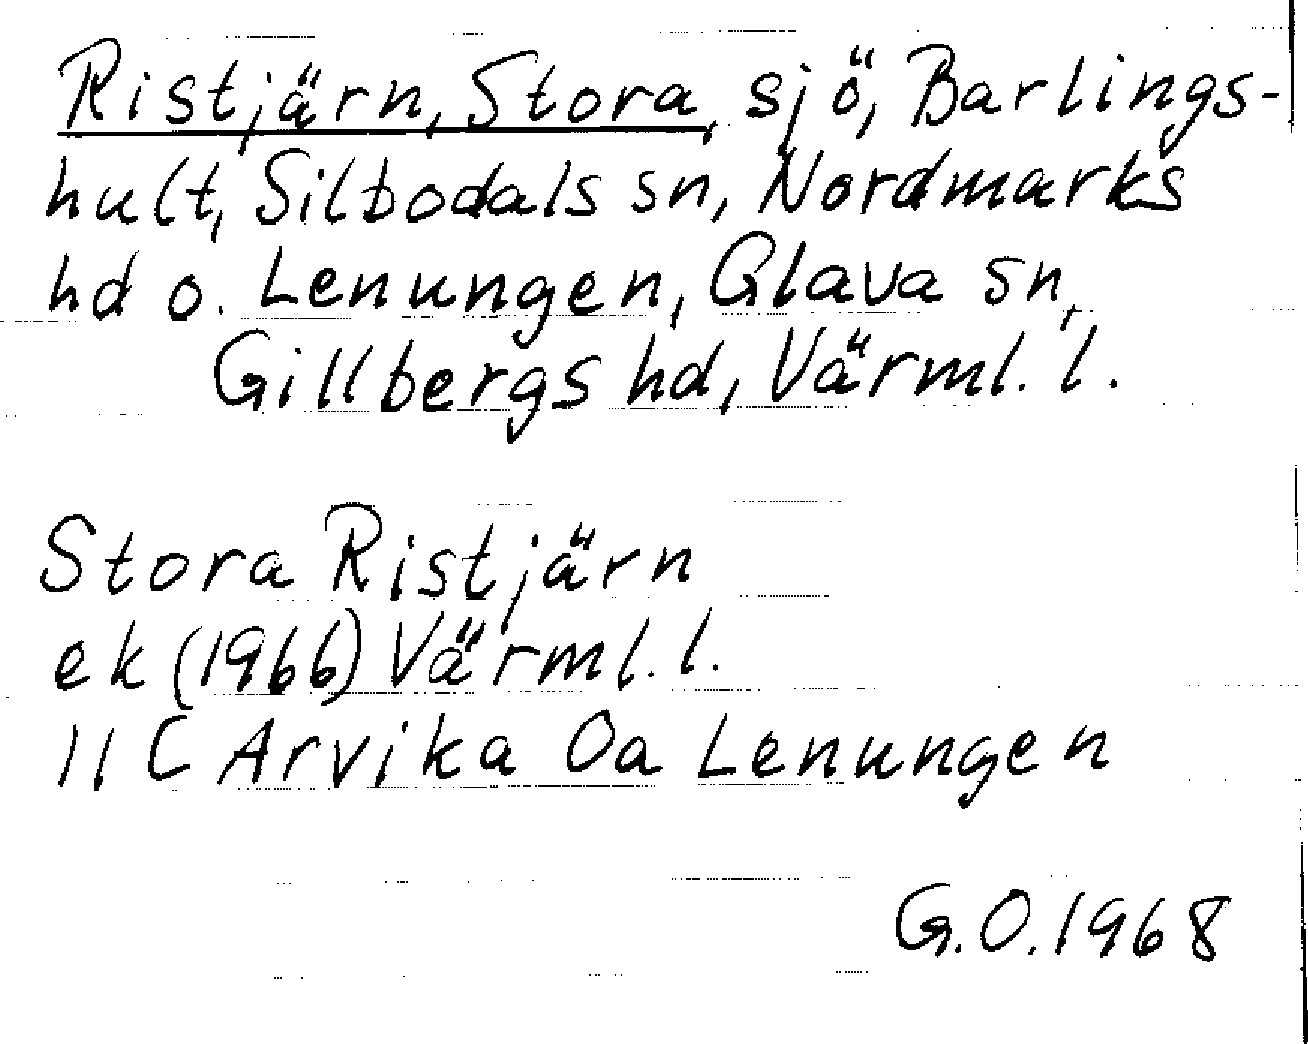 Ristjärn, Stora, sjö, Barlings-
hult, Silbodals sn, Nordmarks
hd o. Lenungen, Glava sn,
Gillbergs hd, Värml. l.
Stora Ristjärn
ek (1966) Värml. l.
11 C Arvika Oa Lenungen
G.O. 1968